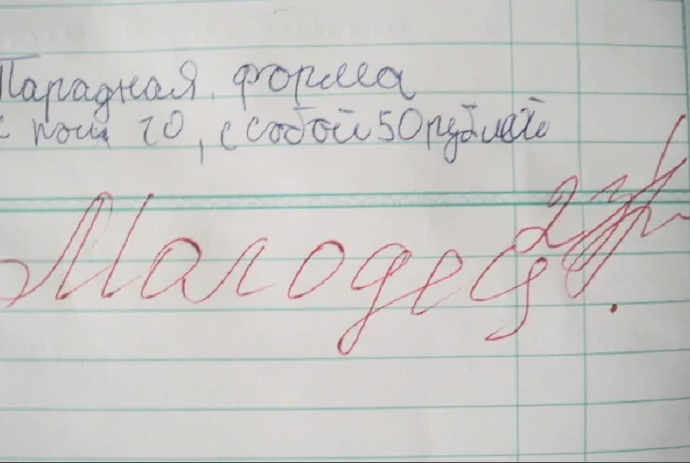 Парадная форма
к 10, с собой 50 рублей
Малодец!